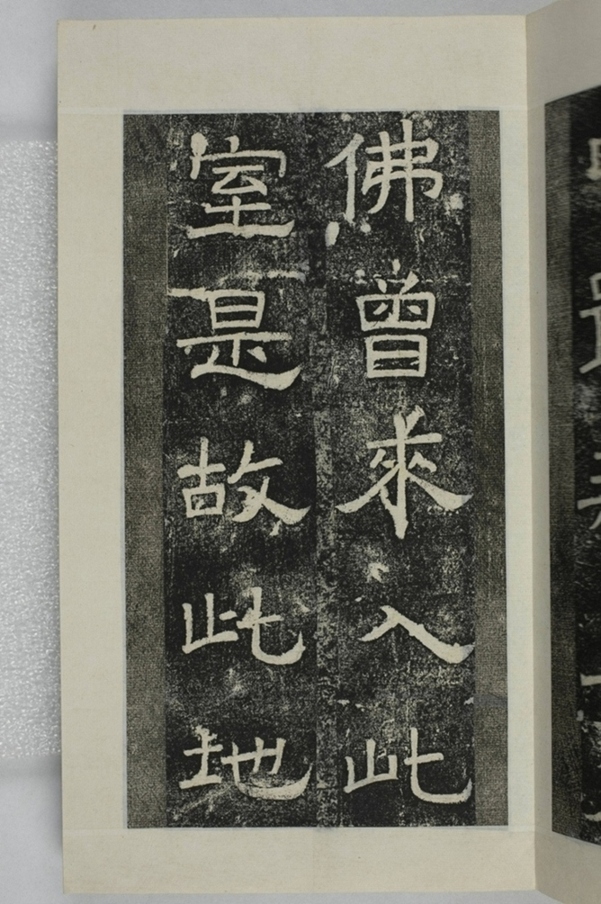 佛曾來入此
室是故此地